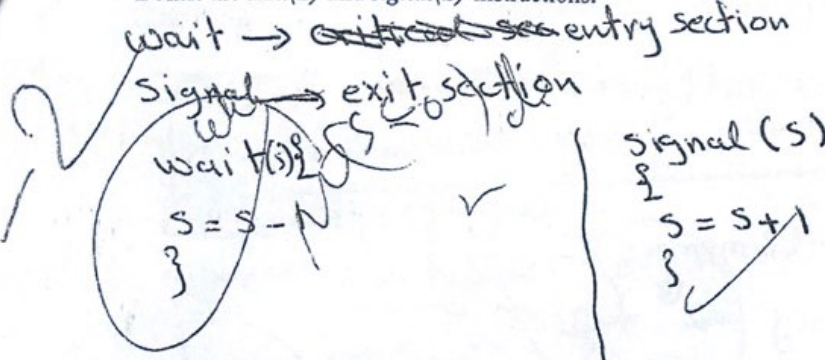 wait → entry section
signal → exit section
wait(s){
s = s - 1
}
signal (s)
{
s = s + 1
}